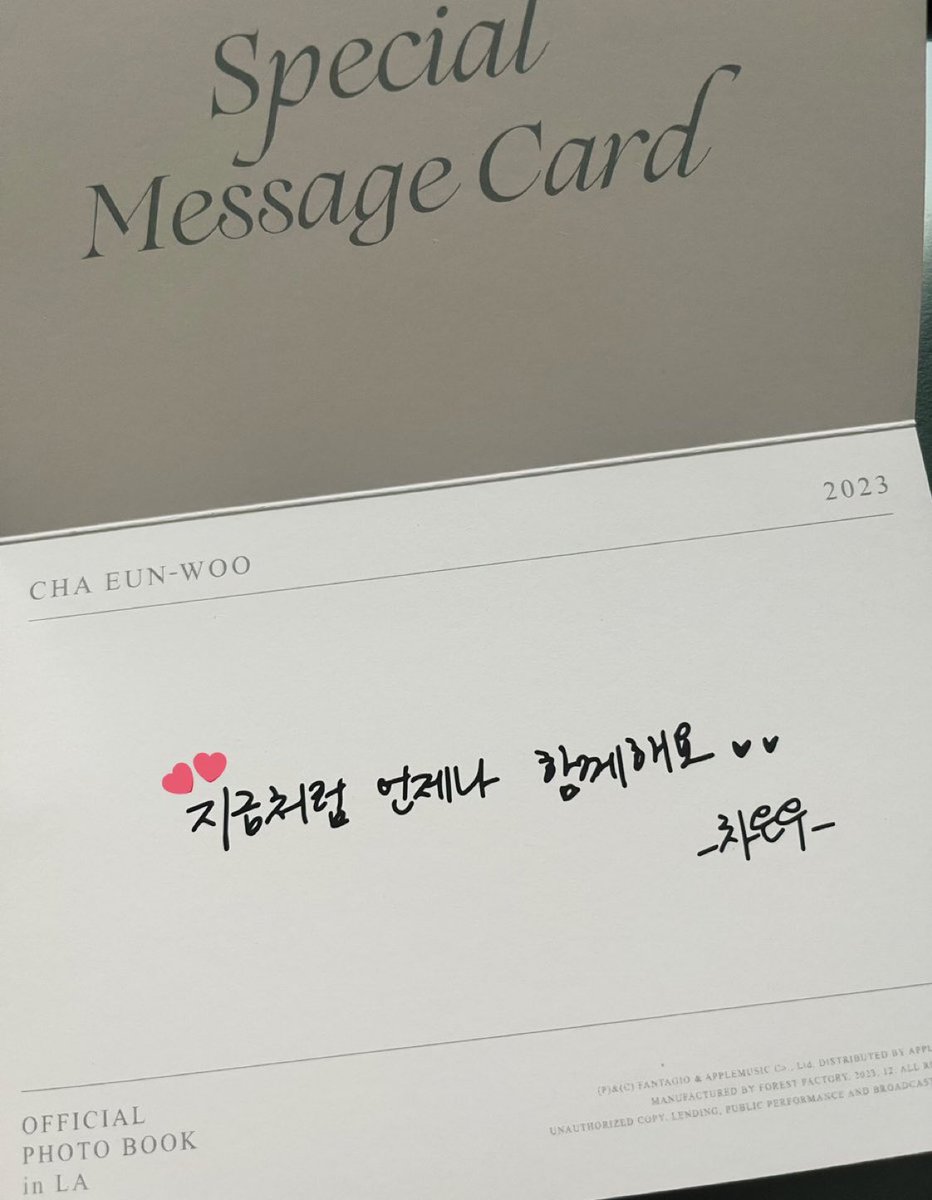 Special
Message Card
CHA EUN-WOO
2023
지금처럼 언제나 함께해요
-차은우-
OFFICIAL
PHOTO BOOK
in LA
(P)&(C) FANTAGIO & APPLEMUSIC Co., Ltd. DISTRIBUTED BY
MANUFACTURED BY FOREST FACTORY. 2023. 12. ALL
UNAUTHORIZED COPY, LENDING, PUBLIC PERFORMANCE AND